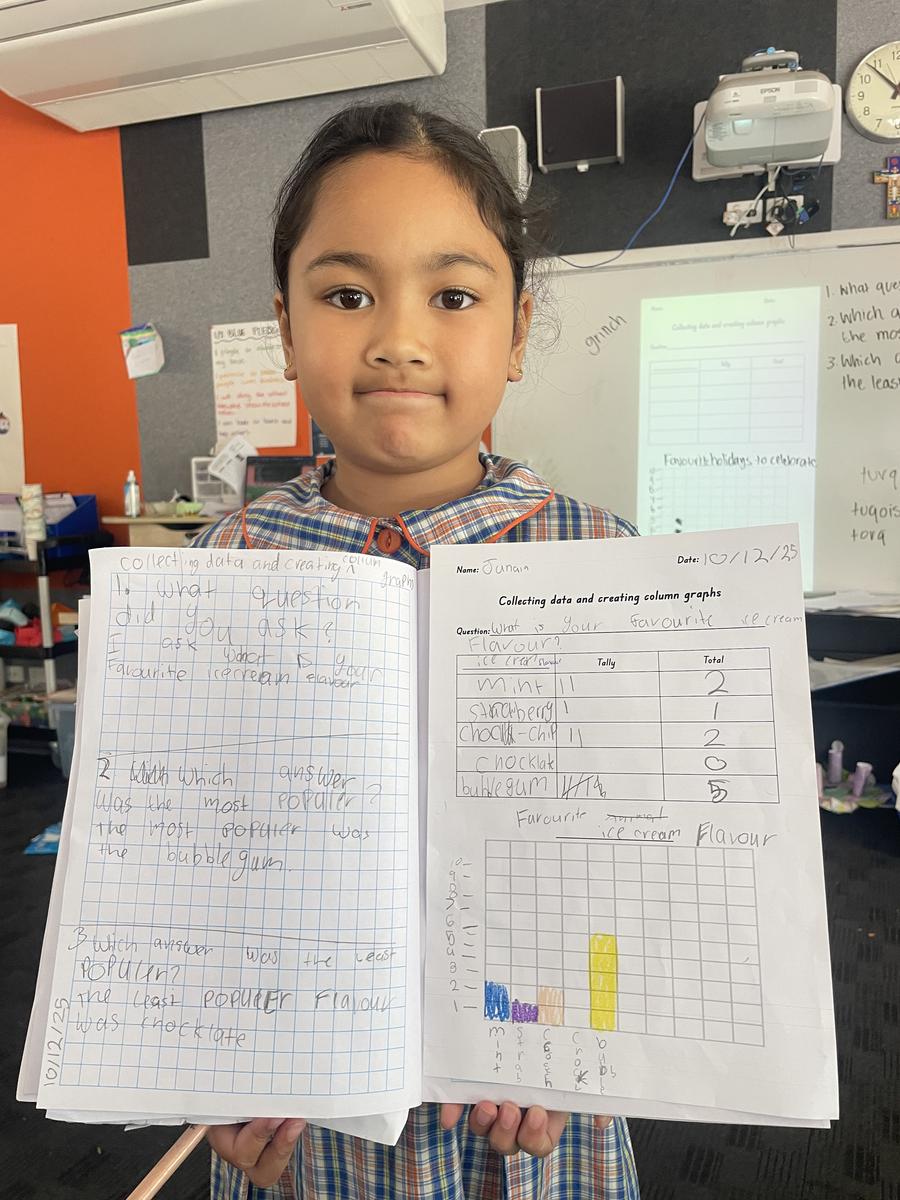 MITSUBISHI
EPSON
10
11
12
9
8
7
6
grinch
1. What
2. Which
the
3. Which
the
Collecting data and creating column graphs
Favourite holidays to celebrate
Collecting data and creating colum
graphs
1. what question
did you ask?
I ask what is your
Favourite icecream flavour
2 which answer
was the most populer?
the most populer was
the bubblegum.
3 which answer was the least
populer?
the least populer Flavour
was chocklate
10/12/25
Name: Junain
Date: 10/12/25
Collecting data and creating column graphs
Question: What is your Favourite ice cream
Flavour?
ice cream Flavour Tally Total
mint || 2
strawberry | 1
chock-chip || 2
chocklat 0
bublegum 5
Favourite ice cream Flavour
10
9
8
7
6
5
4
3
2
1
mint
strab
choc
b